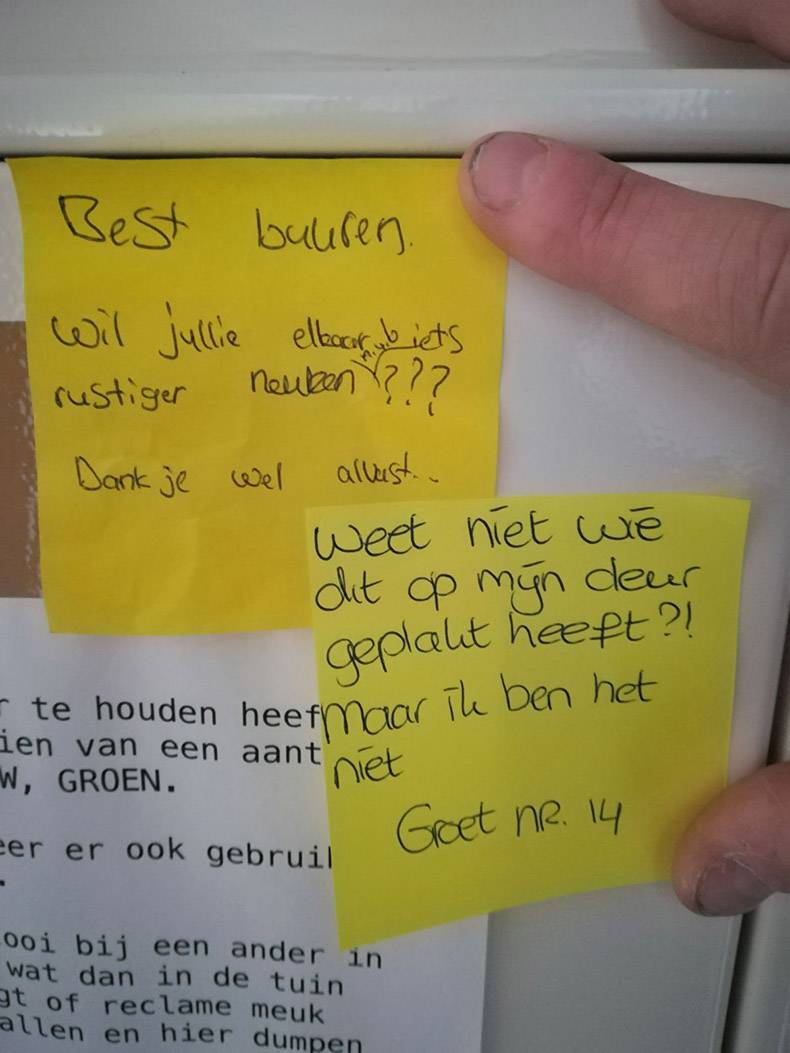 Best buuren.
Wil jullie elkaar iets
rustiger neuken ???
Dank je wel alvast..
Weet niet wie
dit op mijn deur
geplakt heeft?!
Maar ik ben het
niet
Groet nr. 14
r te houden heef
ien van een aant
W, GROEN.
eer er ook gebruik
.
ooi bij een ander in
wat dan in de tuin
gt of reclame meuk
allen en hier dumpen